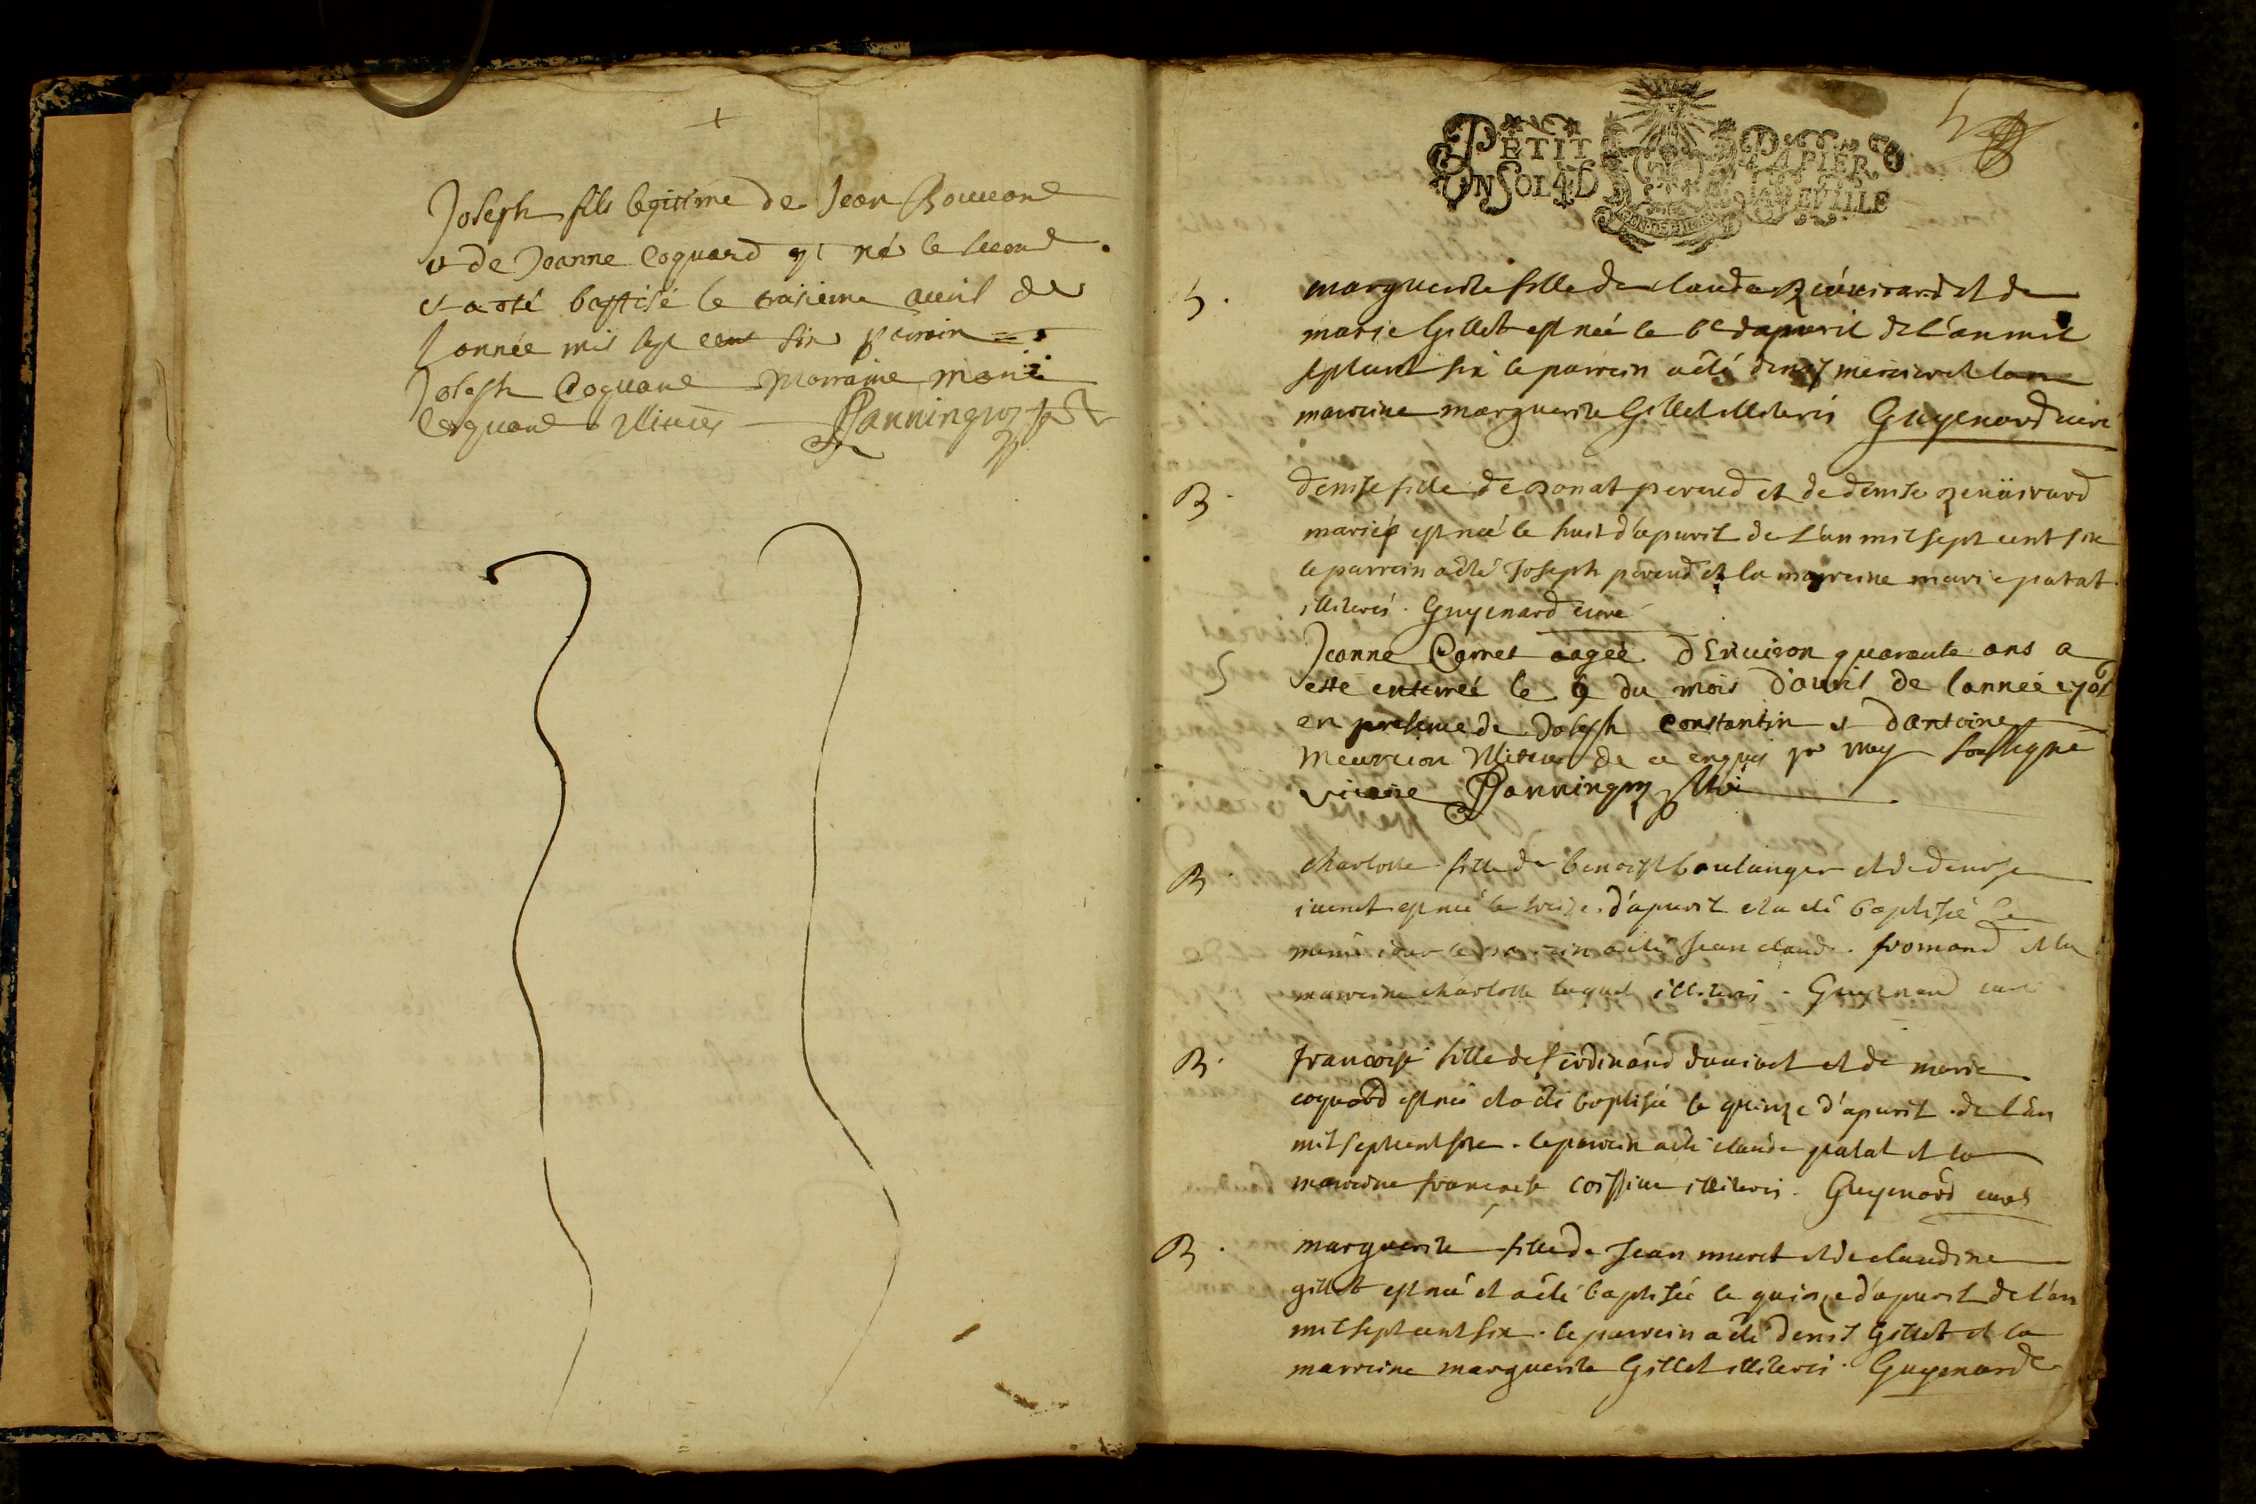 Joseph fils legitime de Jean
et de Jeanne Coquard est né le second
et a esté baptisé le troisieme avril de
l'année mil sept cent six parrain
Joseph Coquard Marraine marie
Coquard illiterés
PETIT PAPIER
UN SOL 4 D LA FEUILLE
5.
marguerite fille de claude et de
marie Gillet est née le 6e d'apuril de l'an mil
sept cent six le parrein a été denis mercier et la
marreine marguerite Gillet illiterés Guyenard curé
B.
denise fille de Donat perend et de denise
mariés est née le huit d'apuril de l'an mil sept cent six
le parrein a été Joseph perend et la marreine marie patat
illiterés. Guyenard curé
S
Jeanne Cornet aagée d'Environ quarante ans a
esté enterrée le 9 du mois d'avril de l'année 1706
en presence de Joseph Constantin et d'Antoine
illiteres de ce enquis par moy soussigné
vicaire
B.
Charlotte fille de benoist boulanger et de denise
est née le d'apuril et a été baptisée le
même jour le parrein a été Jean claude fromand et la
marreine charlotte illiterés. Guyenard curé
B.
francoise fille de ferdinand et de marie
coquard est née et a été baptisée le quinze d'apuril de l'an
mil sept cent six. le parrein a été claude patat et la
marreine francoise illiterés. Guyenard curé
B.
marguerite fille de Jean muret et de claudine
gillet est née et a été baptisée le quinze d'apuril de l'an
mil sept cent six. le parrein a été denis Gillet et la
marreine marguerite Gillet illiterés. Guyenard